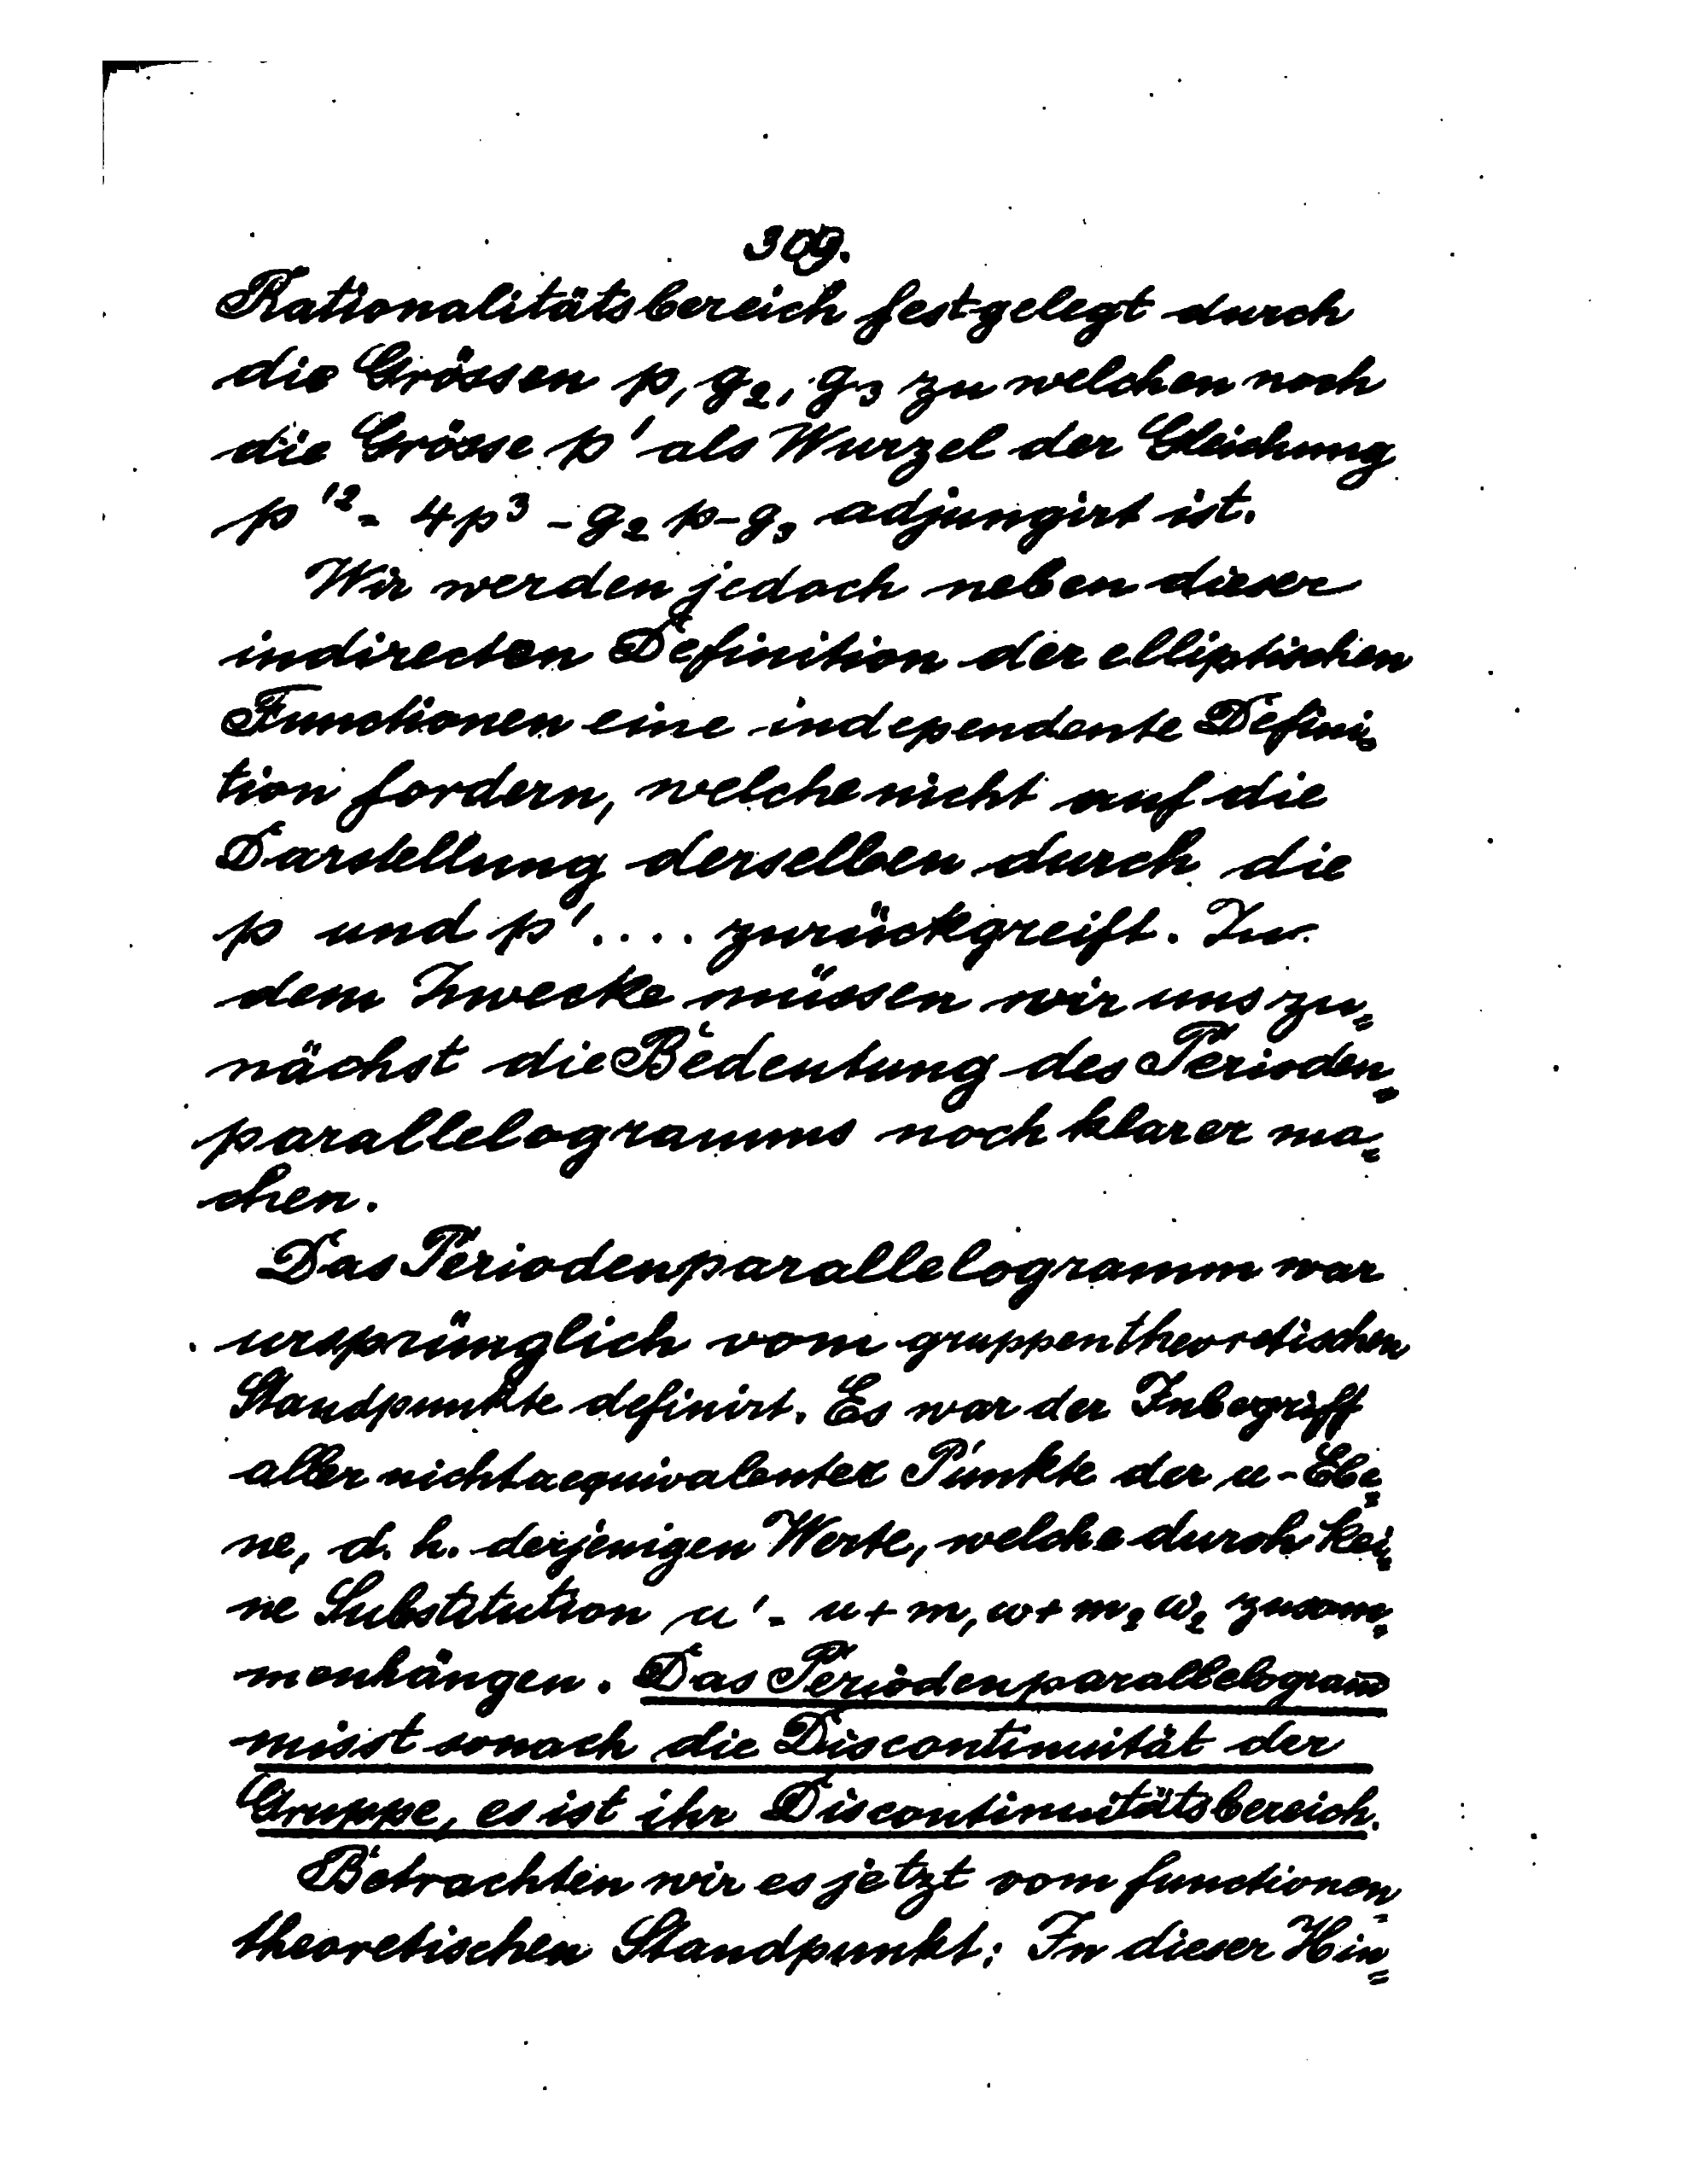 309.
Rationalitätsbereich festgelegt durch
die Grössen p, g₂, g₃ zu welchen noch
die Grösse p' als Wurzel der Gleichung
p'² = 4p³ - g₂ p - g₃ adjungirt ist.
Wir werden jedoch neben dieser
indirecten Definition der elliptischen
Functionen eine independente Defini=
tion fordern, welche nicht auf die
Darstellung derselben durch die
p und p' .... zurückgreift. Zu
dem Zwecke müssen wir uns zu=
nächst die Bedeutung des Perioden=
parallelogramms noch klarer ma=
chen.
Das Periodenparallelogramm war
ursprünglich vom gruppentheoretischen
Standpunkte definirt. Es war der Inbegriff
aller nichtaequivalenter Punkte der u-Ebe=
ne, d. h. derjenigen Werte, welche durch kei=
ne Substitution u' = u + m, ω + m₂ ω₂ zusam=
menhängen. Das Periodenparallelogram̅
misst sonach die Discontinuität der
Gruppe, es ist ihr Discontinuitätsbereich.
Betrachten wir es jetzt vom functionen=
theoretischen Standpunkt: In dieser Hin=